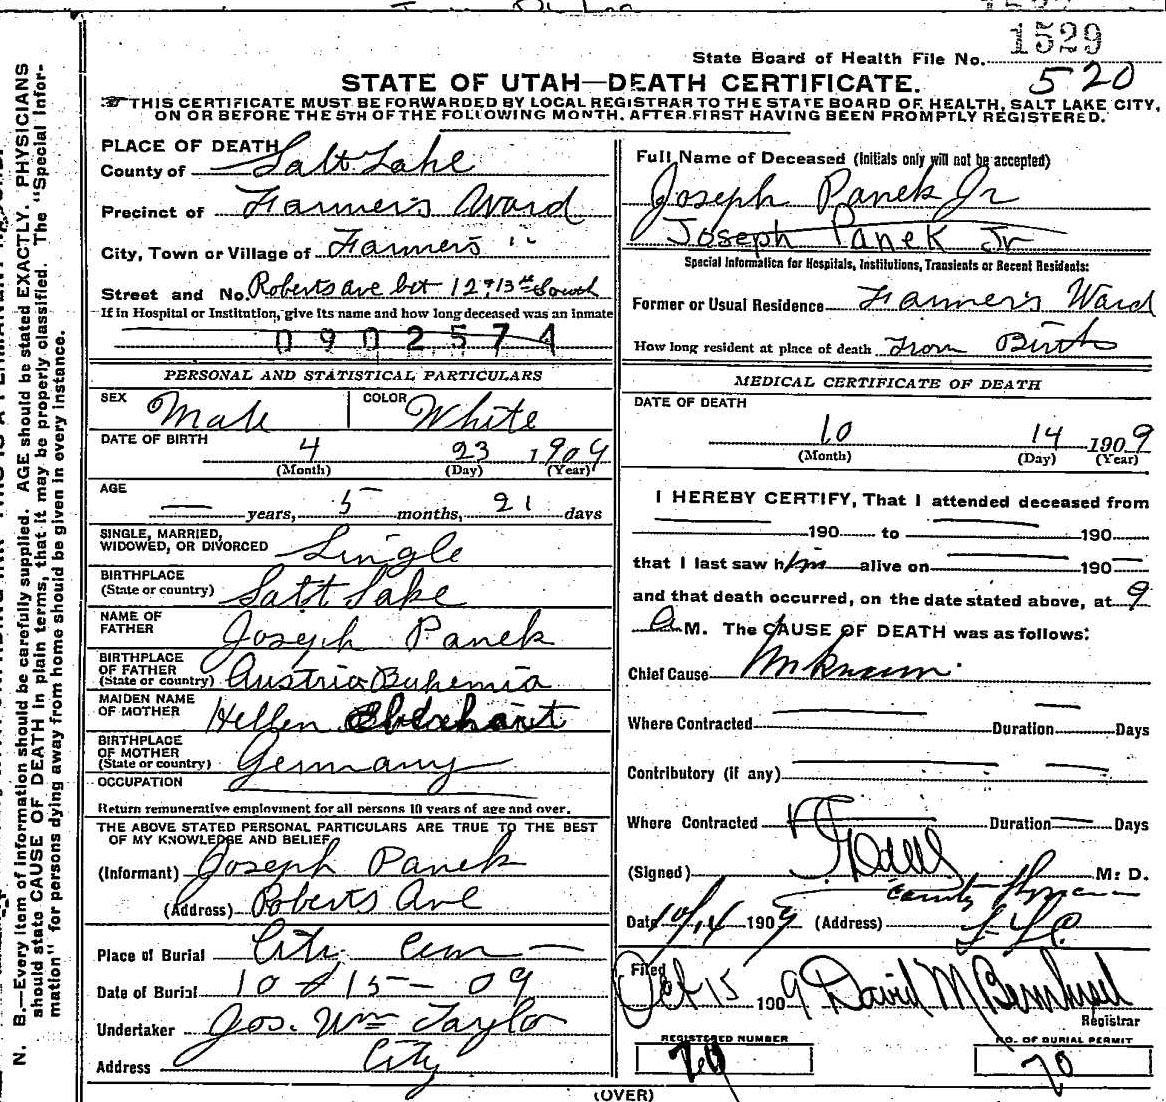 1529
State Board of Health File No. 520
STATE OF UTAH—DEATH CERTIFICATE.
THIS CERTIFICATE MUST BE FORWARDED BY LOCAL REGISTRAR TO THE STATE BOARD OF HEALTH, SALT LAKE CITY,
ON OR BEFORE THE 5TH OF THE FOLLOWING MONTH, AFTER FIRST HAVING BEEN PROMPTLY REGISTERED.
PLACE OF DEATH
County of Salt Lake
Precinct of Farmer's Ward
City, Town or Village of Farmers "
Street and No. Roberts ave bet 12 & 13th South
If in Hospital or Institution, give its name and how long deceased was an inmate
0902574
PERSONAL AND STATISTICAL PARTICULARS
SEX Male COLOR White
DATE OF BIRTH 4 23 1909
(Month) (Day) (Year)
AGE
— years, 5 months, 21 days
SINGLE, MARRIED,
WIDOWED, OR DIVORCED Single
BIRTHPLACE
(State or country) Salt Lake
NAME OF
FATHER Joseph Panek
BIRTHPLACE
OF FATHER
(State or country) Austria Buhemia
MAIDEN NAME
OF MOTHER Hellen
BIRTHPLACE
OF MOTHER
(State or country) Germany
OCCUPATION
Return remunerative employment for all persons 10 years of age and over.
THE ABOVE STATED PERSONAL PARTICULARS ARE TRUE TO THE BEST
OF MY KNOWLEDGE AND BELIEF
(Informant) Joseph Panek
(Address) Roberts Ave
Place of Burial City Cem —
Date of Burial 10 - 15 - 09
Undertaker Jos. Wm Taylor
Address City
Full Name of Deceased (Initials only will not be accepted)
Joseph Panek Jr
Joseph Panek Jr
Special Information for Hospitals, Institutions, Transients or Recent Residents:
Former or Usual Residence Farmer's Ward
How long resident at place of death From Birth
MEDICAL CERTIFICATE OF DEATH
DATE OF DEATH
10 14 1909
(Month) (Day) (Year)
I HEREBY CERTIFY, That I attended deceased from
— 190 to — 190
that I last saw him alive on — 190—
and that death occurred, on the date stated above, at 9
a M. The CAUSE OF DEATH was as follows:
Chief Cause Unknown.
Where Contracted — Duration — Days
Contributory (if any) —
Where Contracted — Duration — Days
(Signed) M. D.
County Physician
Date 10/14 1909 (Address) S L C.
Filed Oct 15 1909 David M
Registrar
REGISTERED NUMBER
NO. OF BURIAL PERMIT
70
(OVER)
N. B.—Every item of information should be carefully supplied. AGE should be stated EXACTLY. PHYSICIANS
should state CAUSE OF DEATH in plain terms, that it may be properly classified. The "Special Infor-
mation" for persons dying away from home should be given in every instance.